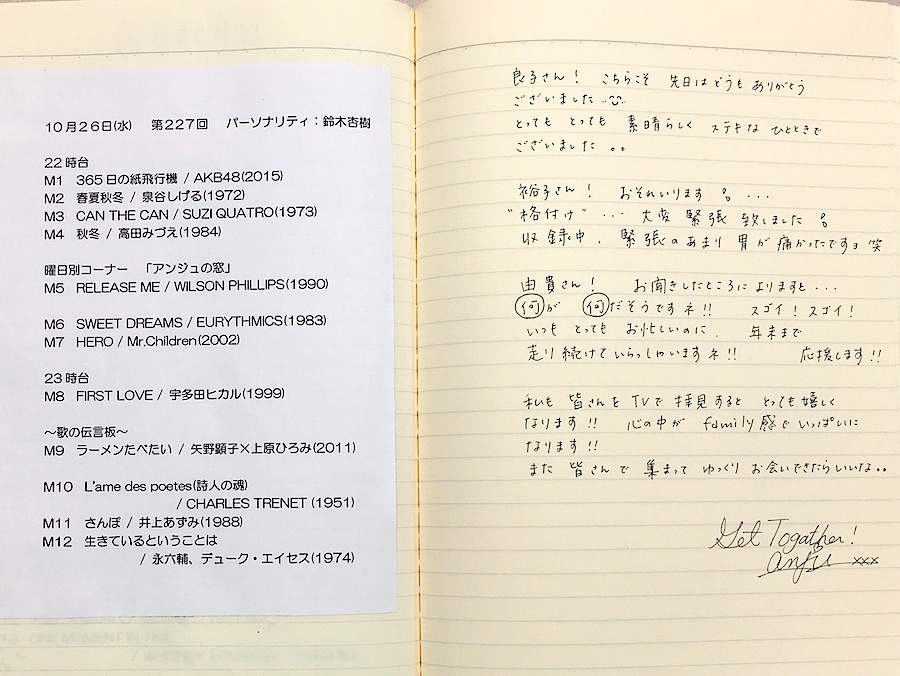 10月26日(水)　第227回　パーソナリティ：鈴木杏樹
22時台
M1　365日の紙飛行機 / AKB48(2015)
M2　春夏秋冬 / 泉谷しげる(1972)
M3　CAN THE CAN / SUZI QUATRO(1973)
M4　秋冬 / 高田みづえ(1984)
曜日別コーナー　「アンジュの窓」
M5　RELEASE ME / WILSON PHILLIPS(1990)
M6　SWEET DREAMS / EURYTHMICS(1983)
M7　HERO / Mr.Children(2002)
23時台
M8　FIRST LOVE / 宇多田ヒカル(1999)
～歌の伝言板～
M9　ラーメンたべたい / 矢野顕子×上原ひろみ(2011)
M10　L'ame des poetes(詩人の魂)
/ CHARLES TRENET(1951)
M11　さんぽ / 井上あずみ(1988)
M12　生きているということは
/ 永六輔、デューク・エイセス(1974)
良子さん！　こちらこそ　先日はどうも ありがとう
ございました
とっても　とっても　素晴らしく　ステキな ひとときで
ございました 。。
裕子さん！　おそれいります ...
"格付け" ... 大変 緊張 致しました
収録中、緊張のあまり 胃が痛かったですョ 笑
由貴さん！　お聞きしたところに よりますと...
何が　何だそうですネ!!　スゴイ！スゴイ！
いつも とっても お忙しいのに、年末まで
走り続けていらっしゃいますネ!!　応援します!!
私も 皆さんを TVで 拝見すると とっても嬉しく
なります!!　心の中が family感で いっぱいに
なります!!
また 皆さんで 集まって ゆっくり お会いできたらいいな。。
Get Together!
anju xxx